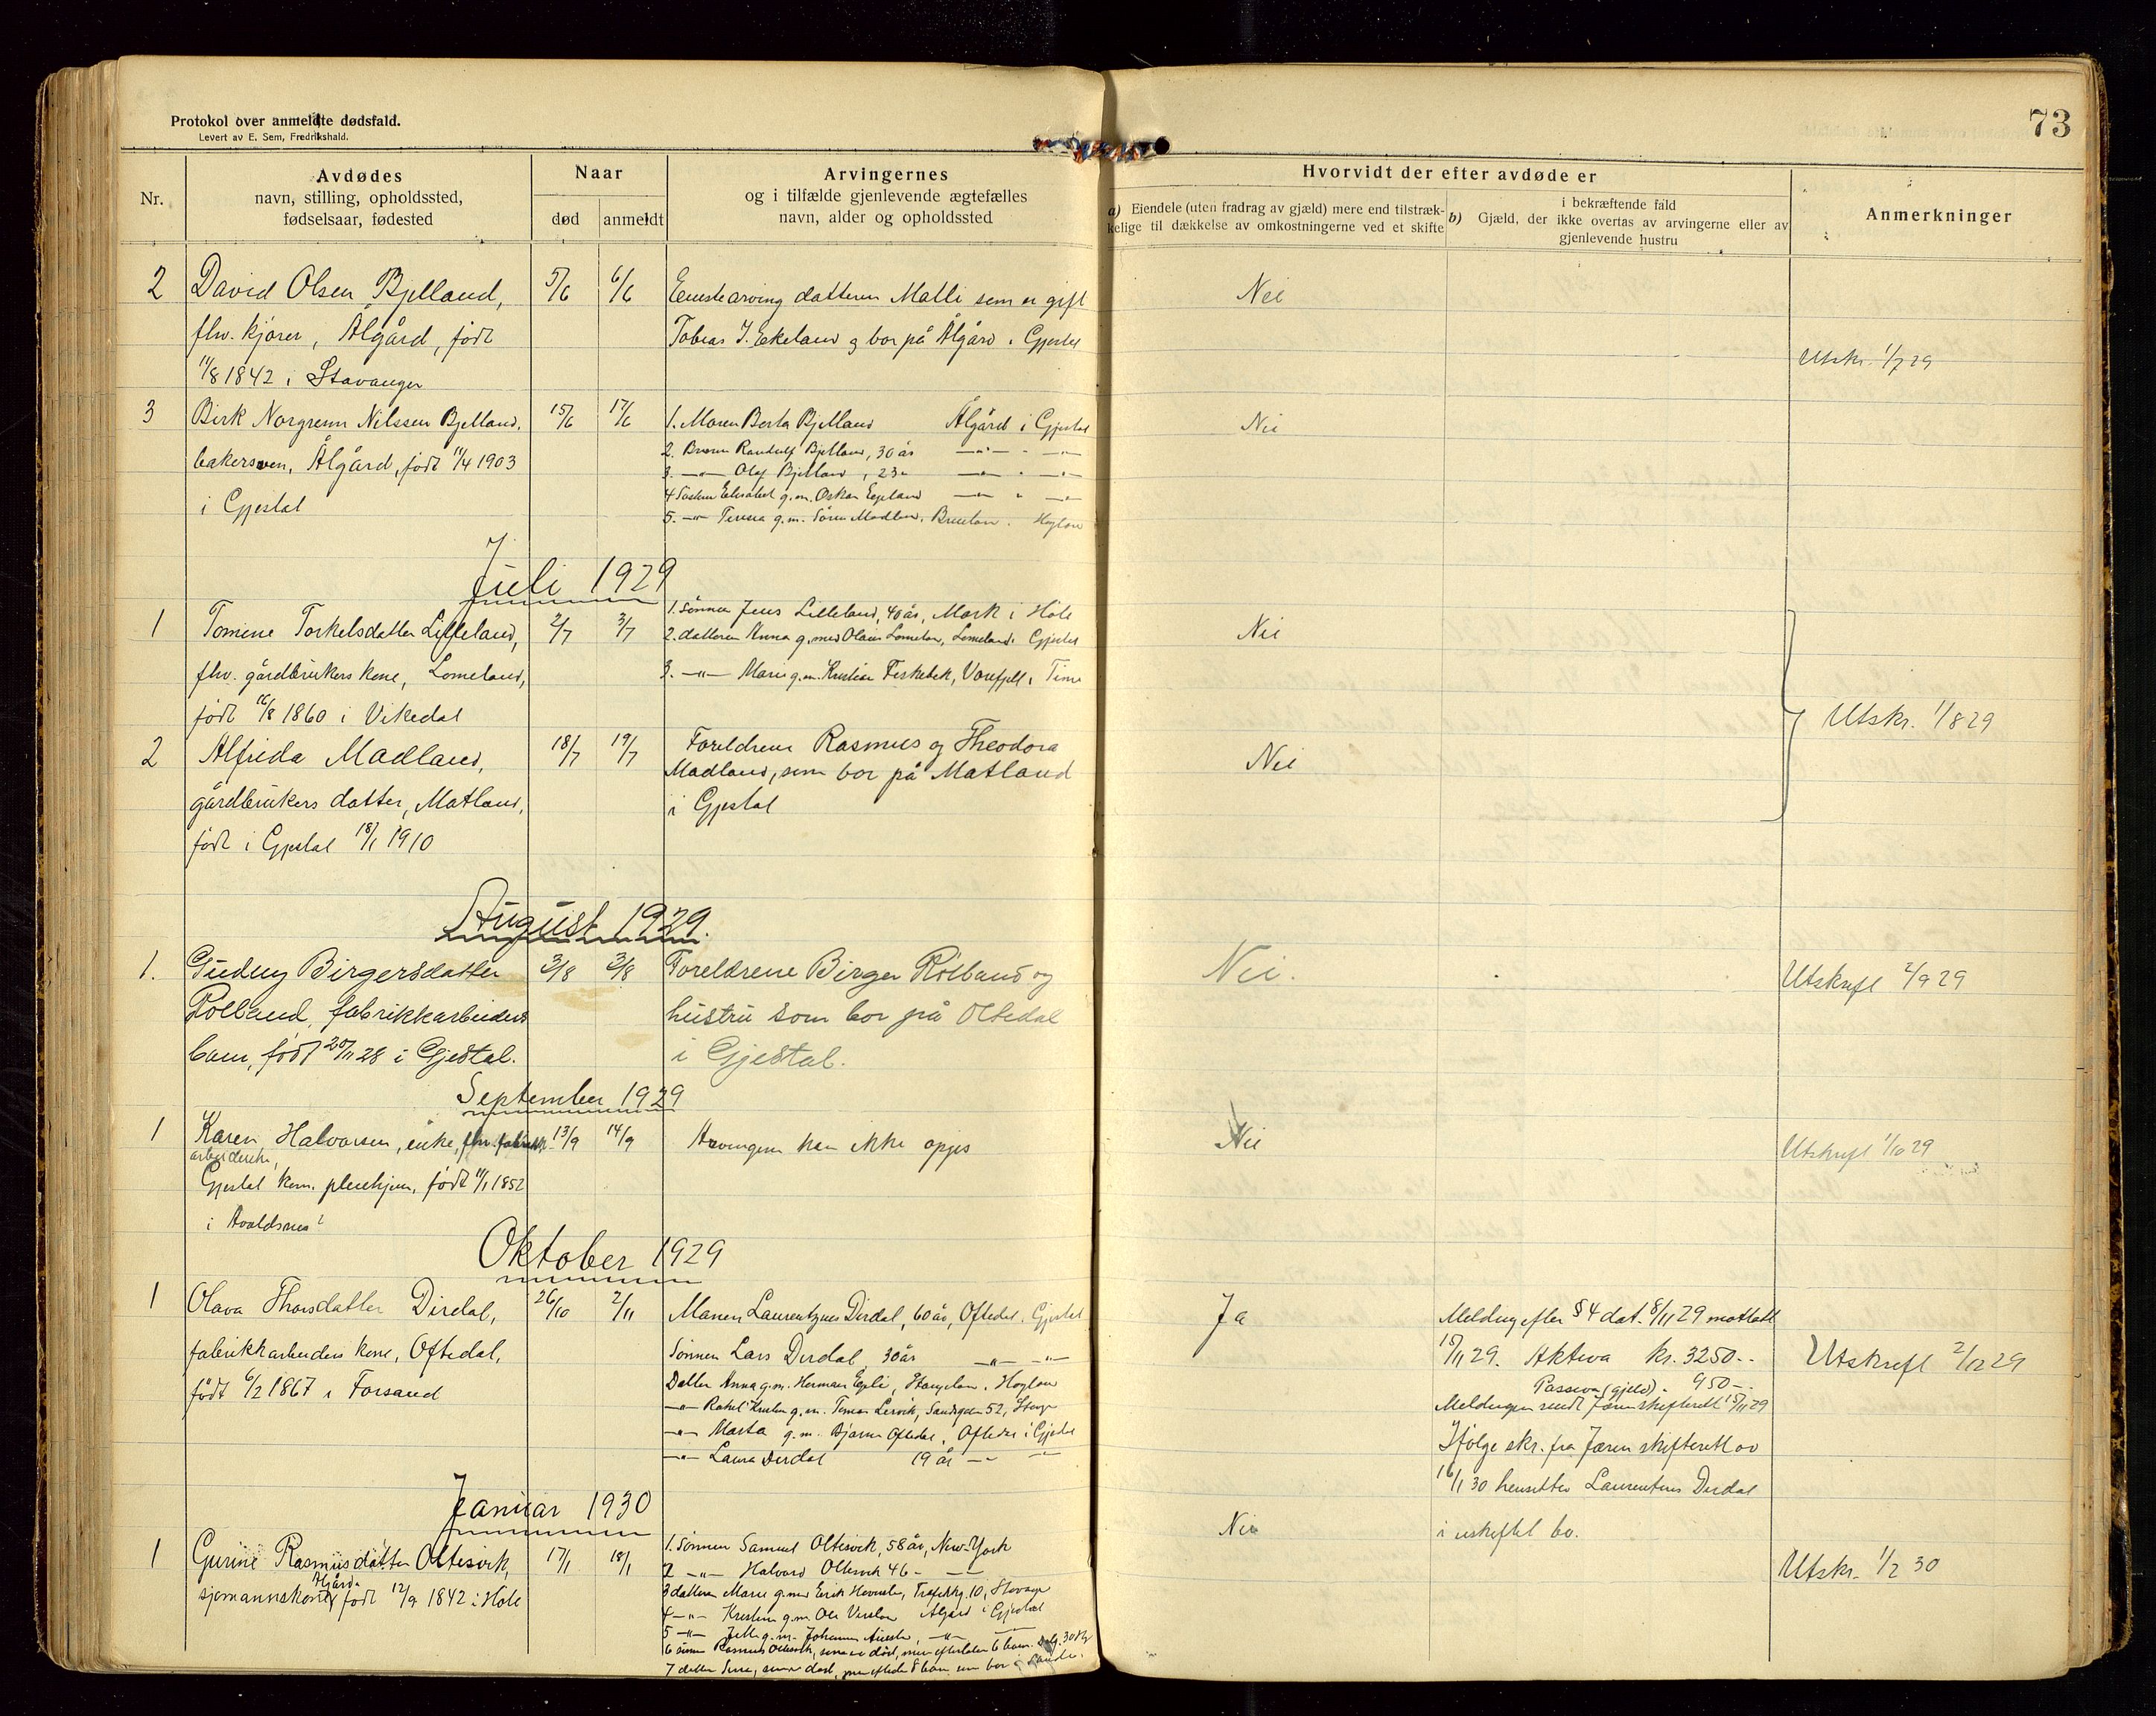 Protokol over anmeldte dødsfald.
Levert av E. Sem, Fredrikshald.
73
Nr.
Avdødes
navn, stilling, opholdssted,
fødselsaar, fødested
Naar
død
anmeldt
Arvingernes
og i tilfælde gjenlevende ægtefælles
navn, alder og opholdssted
Hvorvidt der efter avdøde er
a) Eiendele (uten fradrag av gjæld) mere end tilstræk-
kelige til dækkelse av omkostningerne ved et skifte
i bekræftende fald
b) Gjæld, der ikke overtas av arvingerne eller av
gjenlevende hustru
Anmerkninger
2 David Olsen Bjelland, 5/6 6/6 Enestearving datteren Malli som er gift Nei
fhv. kjører, Ålgård, født Tobias J. Eikeland og bor på Ålgård i Gjestal
11/8 1842 i Stavanger
Utskr. 1/7 29
3 Birk Norgrenn Nilssen Bjelland, 15/6 17/6 1. Maren Berta Bjelland Ålgård i Gjestal Nei
bakersven, Ålgård, født 11/4 1903 2. Broren Randulf Bjelland, 30 år
3. -"- Olaf Bjelland, 23 "
i Gjestal 4 Søsteren Elisabet g.m. Oskar Egeland
5. -"- Teresa g.m. Sören Madland, Brueland i Høyland
Juli 1929
1 Tomine Torkelsdatter Lilleland, 2/7 3/7 1. Sönnen Jens Lilleland, 40 år, Mork i Höle Nei
2. datteren Anna g. med Olaus Lomeland, Lomeland i Gjestal
fhv. gårdbrukers kone, Lomeland, 3. -"- Marie g.m. Kristian Fiskebek, Varefjell i Time
født 16/8 1860 i Vikedal
Utskr. 1/8 29
2 Alfrida Madland, 18/7 19/7 Foreldrene Rasmus og Theodora Nei
gårdbrukers datter, Matland, Madland, som bor på Matland
født i Gjestal 18/1 1910 i Gjestal
August 1929.
1. Gudny Birgersdatter 3/8 3/8 Foreldrene Birger Rölland og Nei. Utskrift 2/9 29
Rölland, fabrikkarbeiders hustru som bor på Oltedal
barn, født 20/11 28 i Gjestal. i Gjestal.
September 1929
1 Karen Halvorsen, enke, fhv. fabrikk 13/9 14/9 Arvingene kan ikke opgis Nei Utskrift 1/10 29
arbeiderske,
Gjestal kom. pleiehjem, født 11/1 1852
i Avaldsnes?
Oktober 1929
1 Olava Thorsdatter Dirdal, 26/10 2/11 Mannen Laurentzius Dirdal, 60 år, Oftedal i Gjestal Ja Melding efter §4 dat. 8/11 29 mottatt
fabrikkarbeiders kone, Oftedal, Sönnen Lars Dirdal 30 år 15/11 29. Aktiva kr. 3250.- Utskrift 2/12 29
født 6/2 1867 i Forsand Datter Anna g.m. Herman Egeli, Stangeland i Høyland Passiva (gjeld) " 950-.
Meldingen sendt Jæren skifterett 15/11 29
-"- Marta g.m. Bjarne Oftedal, Oftedal i Gjestal Ifølge skr. fra Jæren skifterett av
-"- Laura Dirdal 19 år 16/1 30 hensitter Laurentius Dirdal
i uskiftet bo.
Januar 1930
1 Gurine Rasmusdatter Oltesvik, 17/1 18/1 1. Sönnen Samuel Oltesvik, 58 år, New-York Nei
2 -"- Halvard Oltesvik 46 -
sjømannskone, Ålgård født 12/9 1842 i Höle 3 datteren Marie g. med Erik
4 -"- Kristine g.m. Ole Ålgård i Gjestal
5 -"-
6 sönn Rasmus Oltesvik, som er død, men efterlater 6 barn.
7 datter som er død, men efterlater 8 barn som bor i
Utskr. 1/2 30